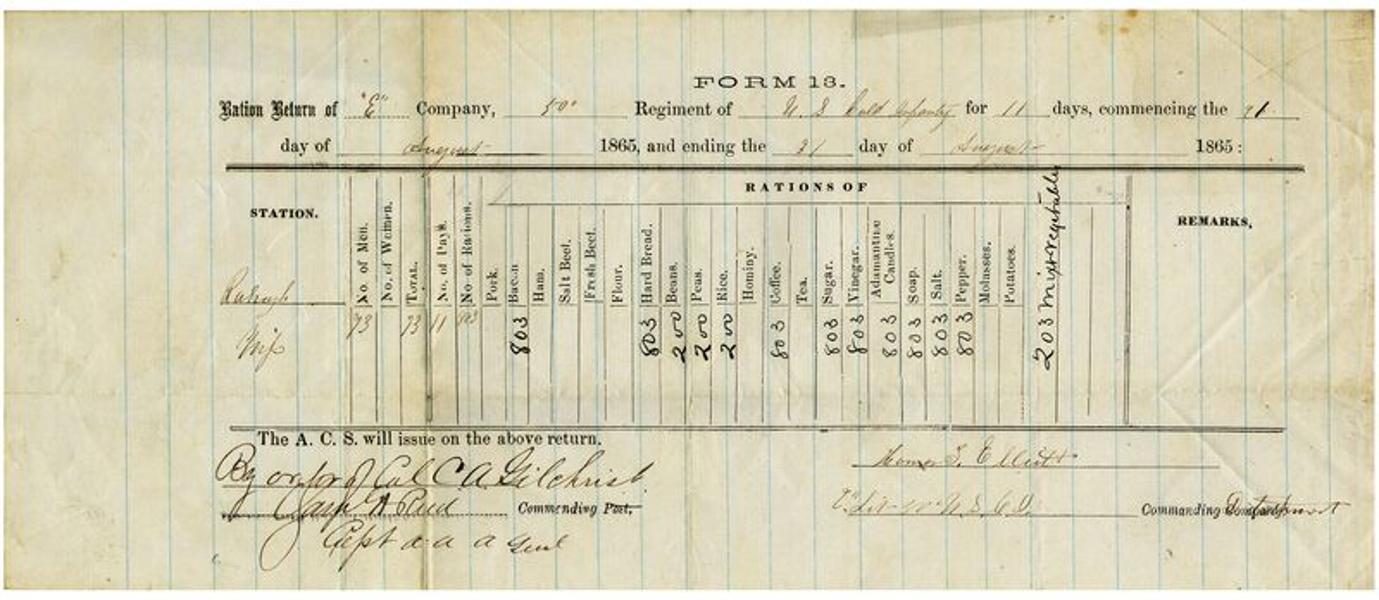 FORM 13.
Ration Return of "E" Company, 50" Regiment of U. S Cold Infantry for 11 days, commencing the 21
day of August 1865, and ending the 31 day of August 1865:
RATIONS OF
STATION. No. of Men. No. of Women. TOTAL. No. of Days. No of Rations. Pork. Bacon Ham. Salt Beef. Fresh Beef. Flour. Hard Bread. Beans. Peas. Rice. Hominy. Coffee. Tea. Sugar. Vinegar. Adamantine Candles. Soap. Salt. Pepper. Molasses. Potatoes. 203 Mixt vegetables REMARKS,
Miss 73 73 11 803 803 803 200 200 200 803 803 803 803 803 803 803
The A. C. S. will issue on the above return.
By order of Col C A Gilchrist Homer S. Elliott
Commending Post, U.S.C.I. Commanding Company Detachment
Capt a a a Genl